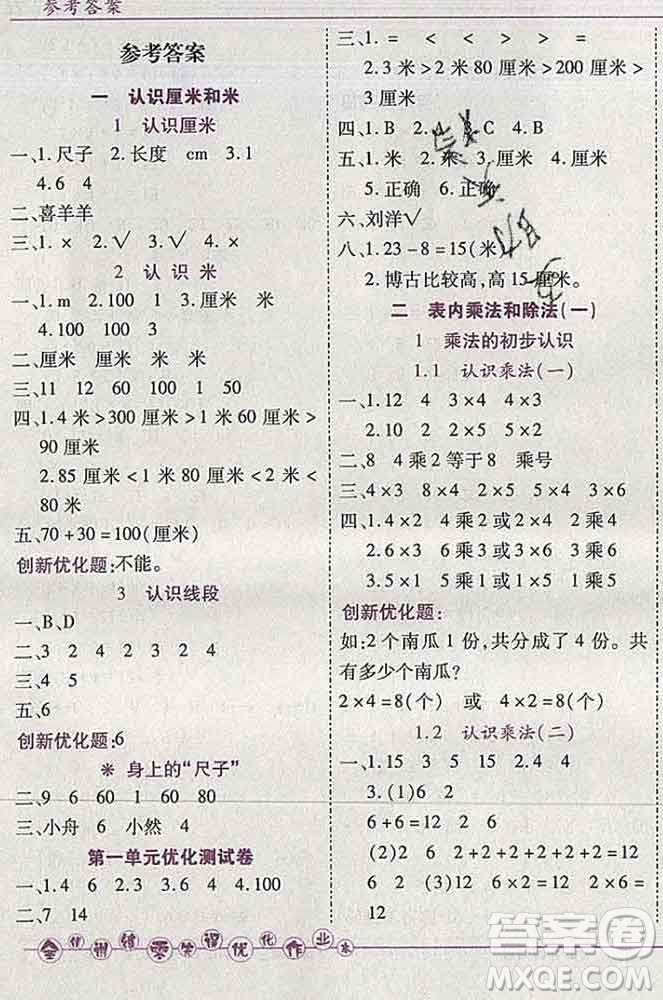 参考答案
参考答案
一 认识厘米和米
1 认识厘米
一、1.尺子 2.长度 cm 3.1
4.6 4
二、喜羊羊
三、1.× 2.√ 3.√
2 认识米
一、1.m 2.100 1 3.100
二、厘米 厘米 米 厘米
三、11 12 60 100
四、1.4米>300厘米>1米60厘米>
50厘米
2.85厘米<1米80厘米<2米<
80米
五、70+30=100(厘米)
创新优化题:不能。
3 认识线段
一、B、D
二、3 2 4 2 3 2 4
三、4 5
五、6
创新优化题:6
※ 身上的“尺子”
二、9 6 60 160 60 80
三、小舟 小然 4
第一单元优化测试卷
一、1.4 6 2.3 3.6 4 4.100
二、7 14
三、1.= < < > < >
2.3米>2米80厘米>200厘米>
3厘米
四、1.B 2.4 3.C 4.B
五、1.米 2.米 3.厘米 4.厘米
5.正确 6.正确
六、刘洋√
八、1.23-8=15(米)
2.博古比较高,高15厘米。
二 表内乘法和除法(一)
1 乘法的初步认识
1.1 认识乘法(一)
一、1.12 4 3×4 4×3
2.10 2 2×5 5×2
二、8 4乘2等于8 乘号
三、4×3 8×4 6×5 9×2
四、1.4×2 4乘2或2×4 2乘4
2.6×3 6乘3或3×6 3乘6
3.5×1 5乘1或1×5 1乘5
创新优化题:
如:2个南瓜1份,共分成了4份。共
有多少个南瓜?
2×4=8(个) 或 4×2=8(个)
1.2 认识乘法(二)
一、1.15 3 5 2.12 4 3
3.(1)6 2
6+6=12 6×2=12
(2)2 6 2+2+2+2+2+2=12
6×2=12
12
答案圈
MXQE.COM